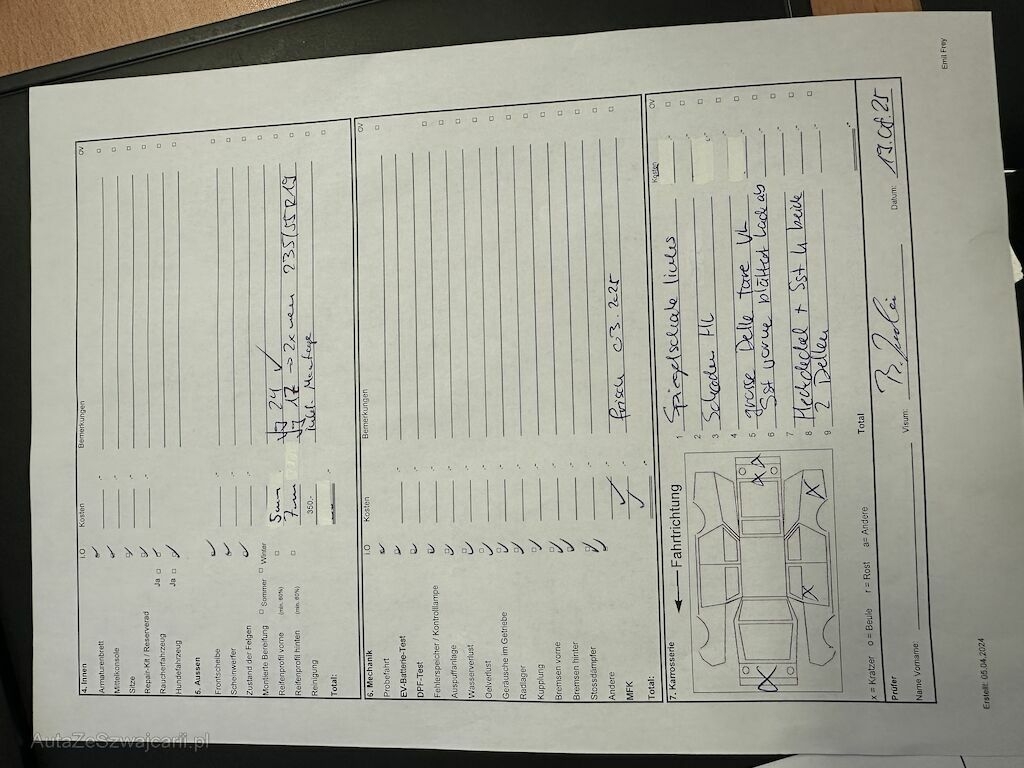 4. Innen
I.O
Kosten
Bemerkungen
OV
Armaturenbrett
Mittelkonsole
Sitze
Repair-Kit / Reserverad
Raucherfahrzeug
Ja
Hundefahrzeug
Ja
5. Aussen
Frontscheibe
Scheinwerfer
Zustand der Felgen
Montierte Bereifung
Sommer
Winter
Reifenprofil vorne
(min. 60%)
5mm
24
Reifenprofil hinten
(min. 60%)
7mm
17 → 2x neu 235/55R19
Reinigung
350.-
inkl. Montage
Total:
6. Mechanik
I.O
Kosten
Bemerkungen
OV
Probefahrt
EV-Batterie-Test
DPF-Test
Fehlerspeicher / Kontrolllampe
Auspuffanlage
Wasserverlust
Oelverlust
Geräusche im Getriebe
Radlager
Kupplung
Bremsen vorne
Bremsen hinter
Stossdämpfer
Andere
MFK
frisch 03.2025
Total:
7. Karrosserie
Fahrtrichtung
Kosten
OV
1 Spiegelschale links
2
3 Schaden HL
4
5 grosse Delle Türe VL
6 Sst vorne blättert Lack ab
7
8 Heckdeckel + Sst H beide
9 2 Dellen
x = Kratzer o = Beule r = Rost a = Andere
Total
Prüfer
Name Vorname:
Visum:
Datum:
Erstellt: 05.04.2024
Emil Frey
AutaZeSzwajcarii.pl